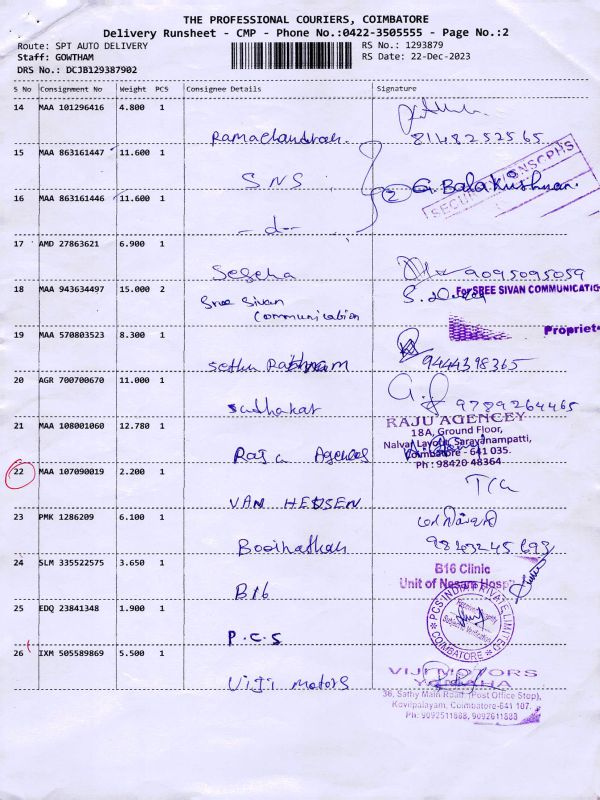 THE PROFESSIONAL COURIERS, COIMBATORE
Delivery Runsheet - CMP - Phone No.:0422-3505555 - Page No.:2
Route: SPT AUTO DELIVERY RS No.: 1293879
Staff: GOWTHAM RS Date: 22-Dec-2023
DRS No.: DCJB129387902
S No Consignment No Weight PCS Consignee Details Signature
14 MAA 101296416 4.800 1
Ramachandran 8148252565
15 MAA 863161447 11.600 1
SNS 2 G. Balakrishnan
16 MAA 863161446 11.600 1
-d-
17 AMD 27863621 6.900 1
9095095059
18 MAA 943634497 15.000 2
Sree Sivan For SREE SIVAN COMMUNICATIO
Communication
19 MAA 570803523 8.300 1 Propriet
Sethu Rathnam 9444398365
20 AGR 700700670 11.000 1
Sudhakar 9789264465
21 MAA 108001060 12.780 1 RAJU AGENCEY
18A, Ground Floor,
Nalvar Layout, Saravanampatti,
Raja Agences Coimbatore - 641 035.
Ph : 98420 48364
22 MAA 107090019 2.200 1
VAN HEUSEN
23 PMK 1286209 6.100 1
9843245693
24 SLM 335522575 3.650 1 B16 Clinic
Unit of Hosp
B16
25 EDQ 23841348 1.900 1 PCS INDIA PRIVATE LIMITED
COIMBATORE
P.C.S
26 IXM 505589869 5.500 1
VIJI MOTORS
Viji Motors YAMAHA
36, Sathy Main Road (Post Office Stop),
Kovilpalayam, Coimbatore-641 107.
Ph: 9092511888, 9092611888